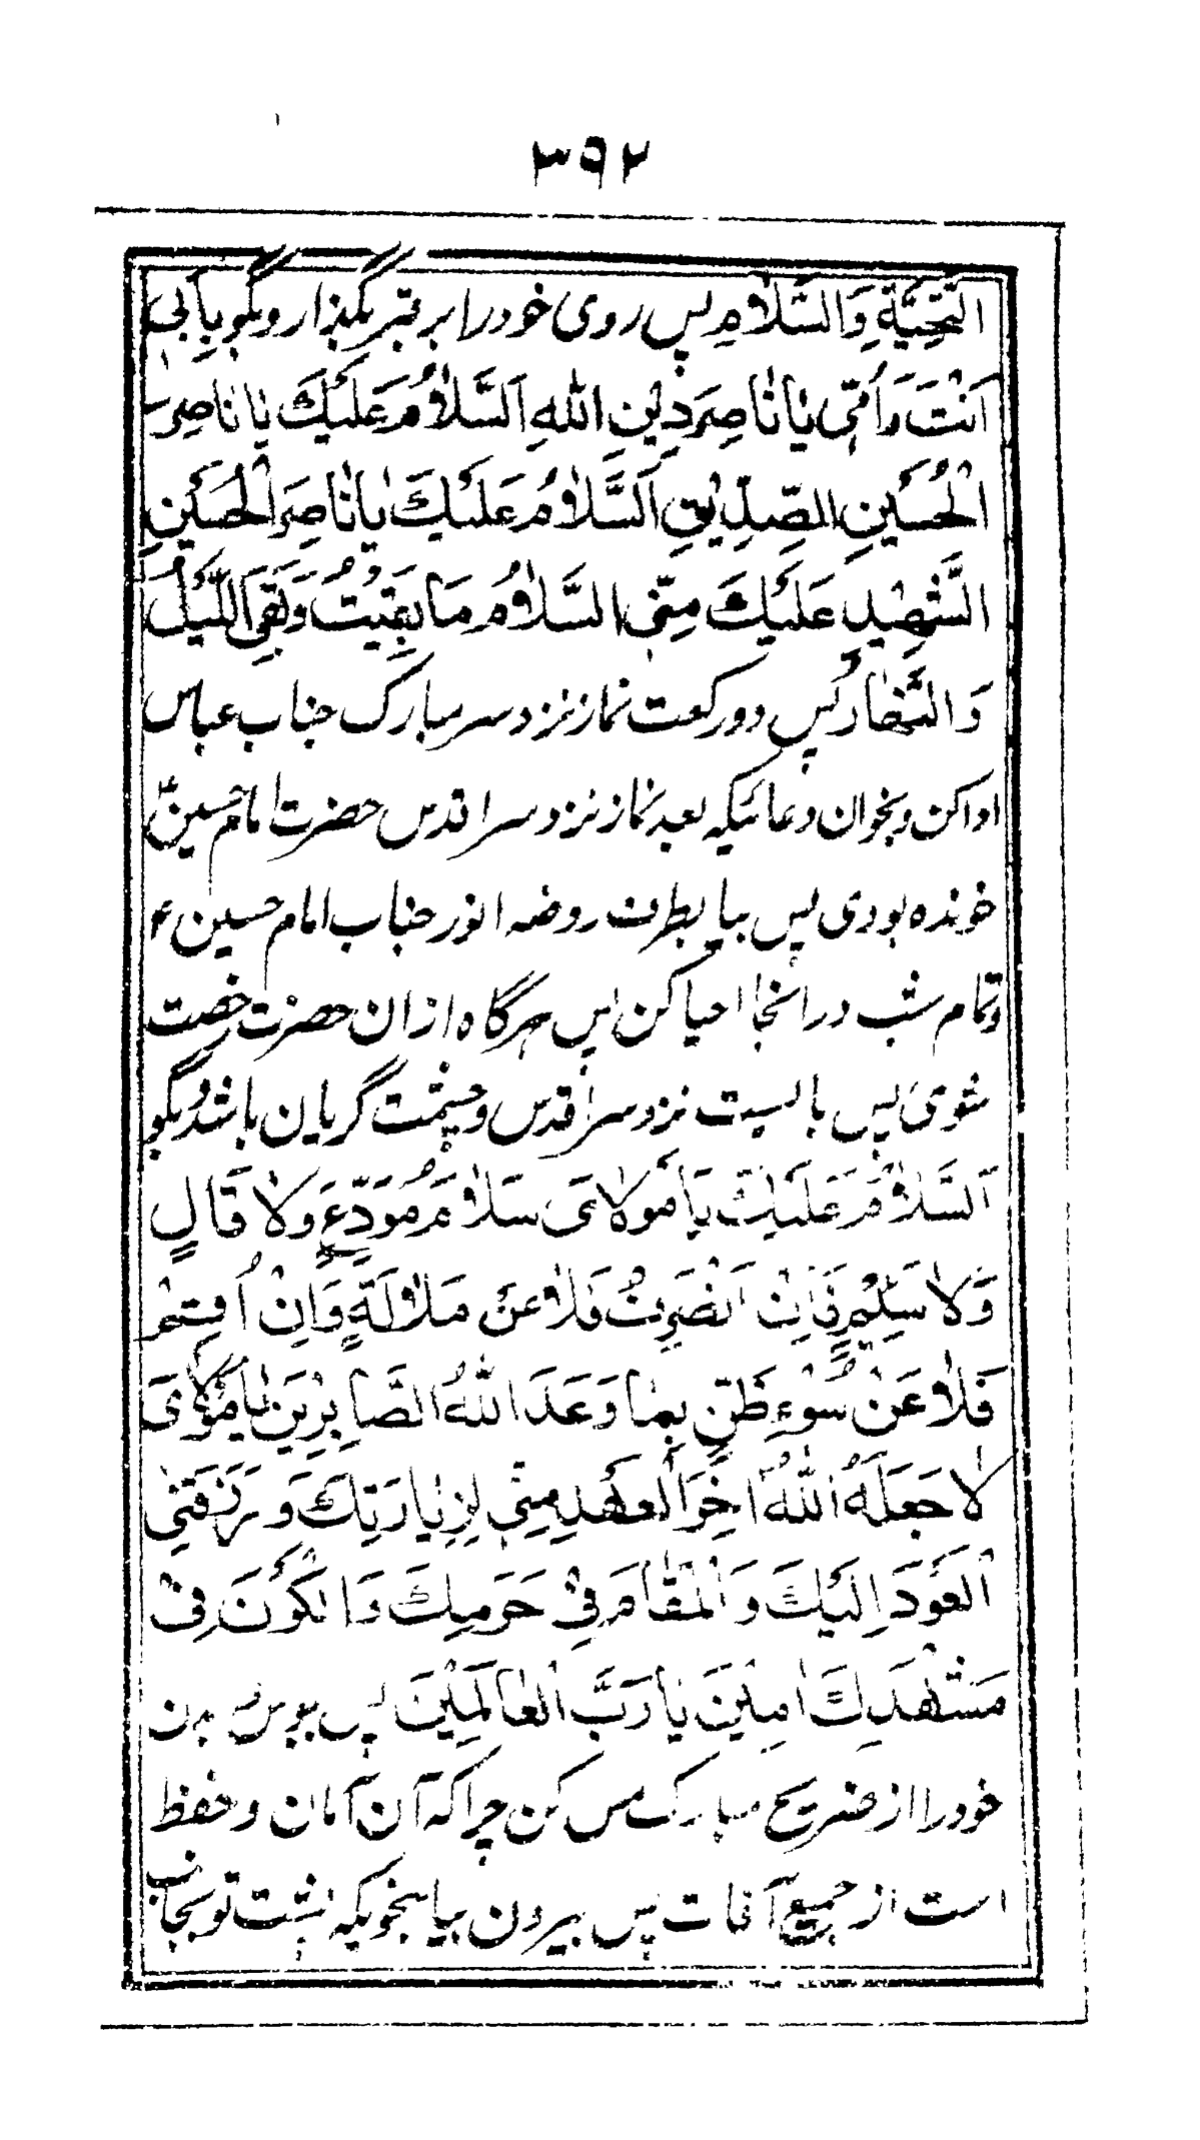 ۳۹۲
التَّحِيَّةِ وَالسَّلَامِ پس روی خود را بر قبر بگذار و بگو بِاَبِی
اَنْتَ وَاُمّی یَا نَاصِرَ دِیْنِ اللهِ اَلسَّلَامُ عَلَیْكَ یَا نَاصِرَ
الْحُسَیْنِ الصِّدِّیْقِ اَلسَّلَامُ عَلَیْكَ یَا نَاصِرَ الْحُسَیْنِ
الشَّهِیْدِ عَلَیْكَ مِنّی السَّلَامُ مَا بَقِیْتُ وَبَقِیَ اللَّیْلُ
وَالنَّهَارُ پس دو رکعت نماز نزد سر مبارک جناب عباس
ادا کن و بخوان دعائیکه بعد نماز نزد سر اقدس حضرت امام حسینؑ
خوانده بودی پس بیا بطرف روضه انور جناب امام حسین ع
و تمام شب در انجا احیا کن پس هرگاه ازان حضرت رخصت
شوی پس بالیست نزد سر اقدس و چشمت گریان باشد و بگو
اَلسَّلَامُ عَلَیْكَ یَا مَوْلَایَ سَلَامَ مُوَدِّعٍ وَلَا قَالٍ
وَلَا سَئِیْمٍ فَاِنْ اَنْصَرِفْ فَلَا عَنْ مَلَالَةٍ وَاِنْ اُقِمْ
فَلَا عَنْ سُوْءِ ظَنٍّ بِمَا وَعَدَ اللهُ الصَّابِرِیْنَ یَا مَوْلَایَ
لَا جَعَلَهُ اللهُ اٰخِرَ الْعَهْدِ مِنّی لِزِیَارَتِكَ وَرَزَقَنِی
الْعَوْدَ اِلَیْكَ وَالْمَقَامَ فِیْ حَرَمِكَ وَالْکَوْنَ فِیْ
مَشْهَدِكَ اٰمِیْنَ یَا رَبَّ الْعَالَمِیْنَ پس ببوس و بدن
خود را از ضریح مبارک مس کن چرا که آن امان و حفظ
است از جمیع آفات پس بیرون بیا بنحویکه پشت تو بجانب